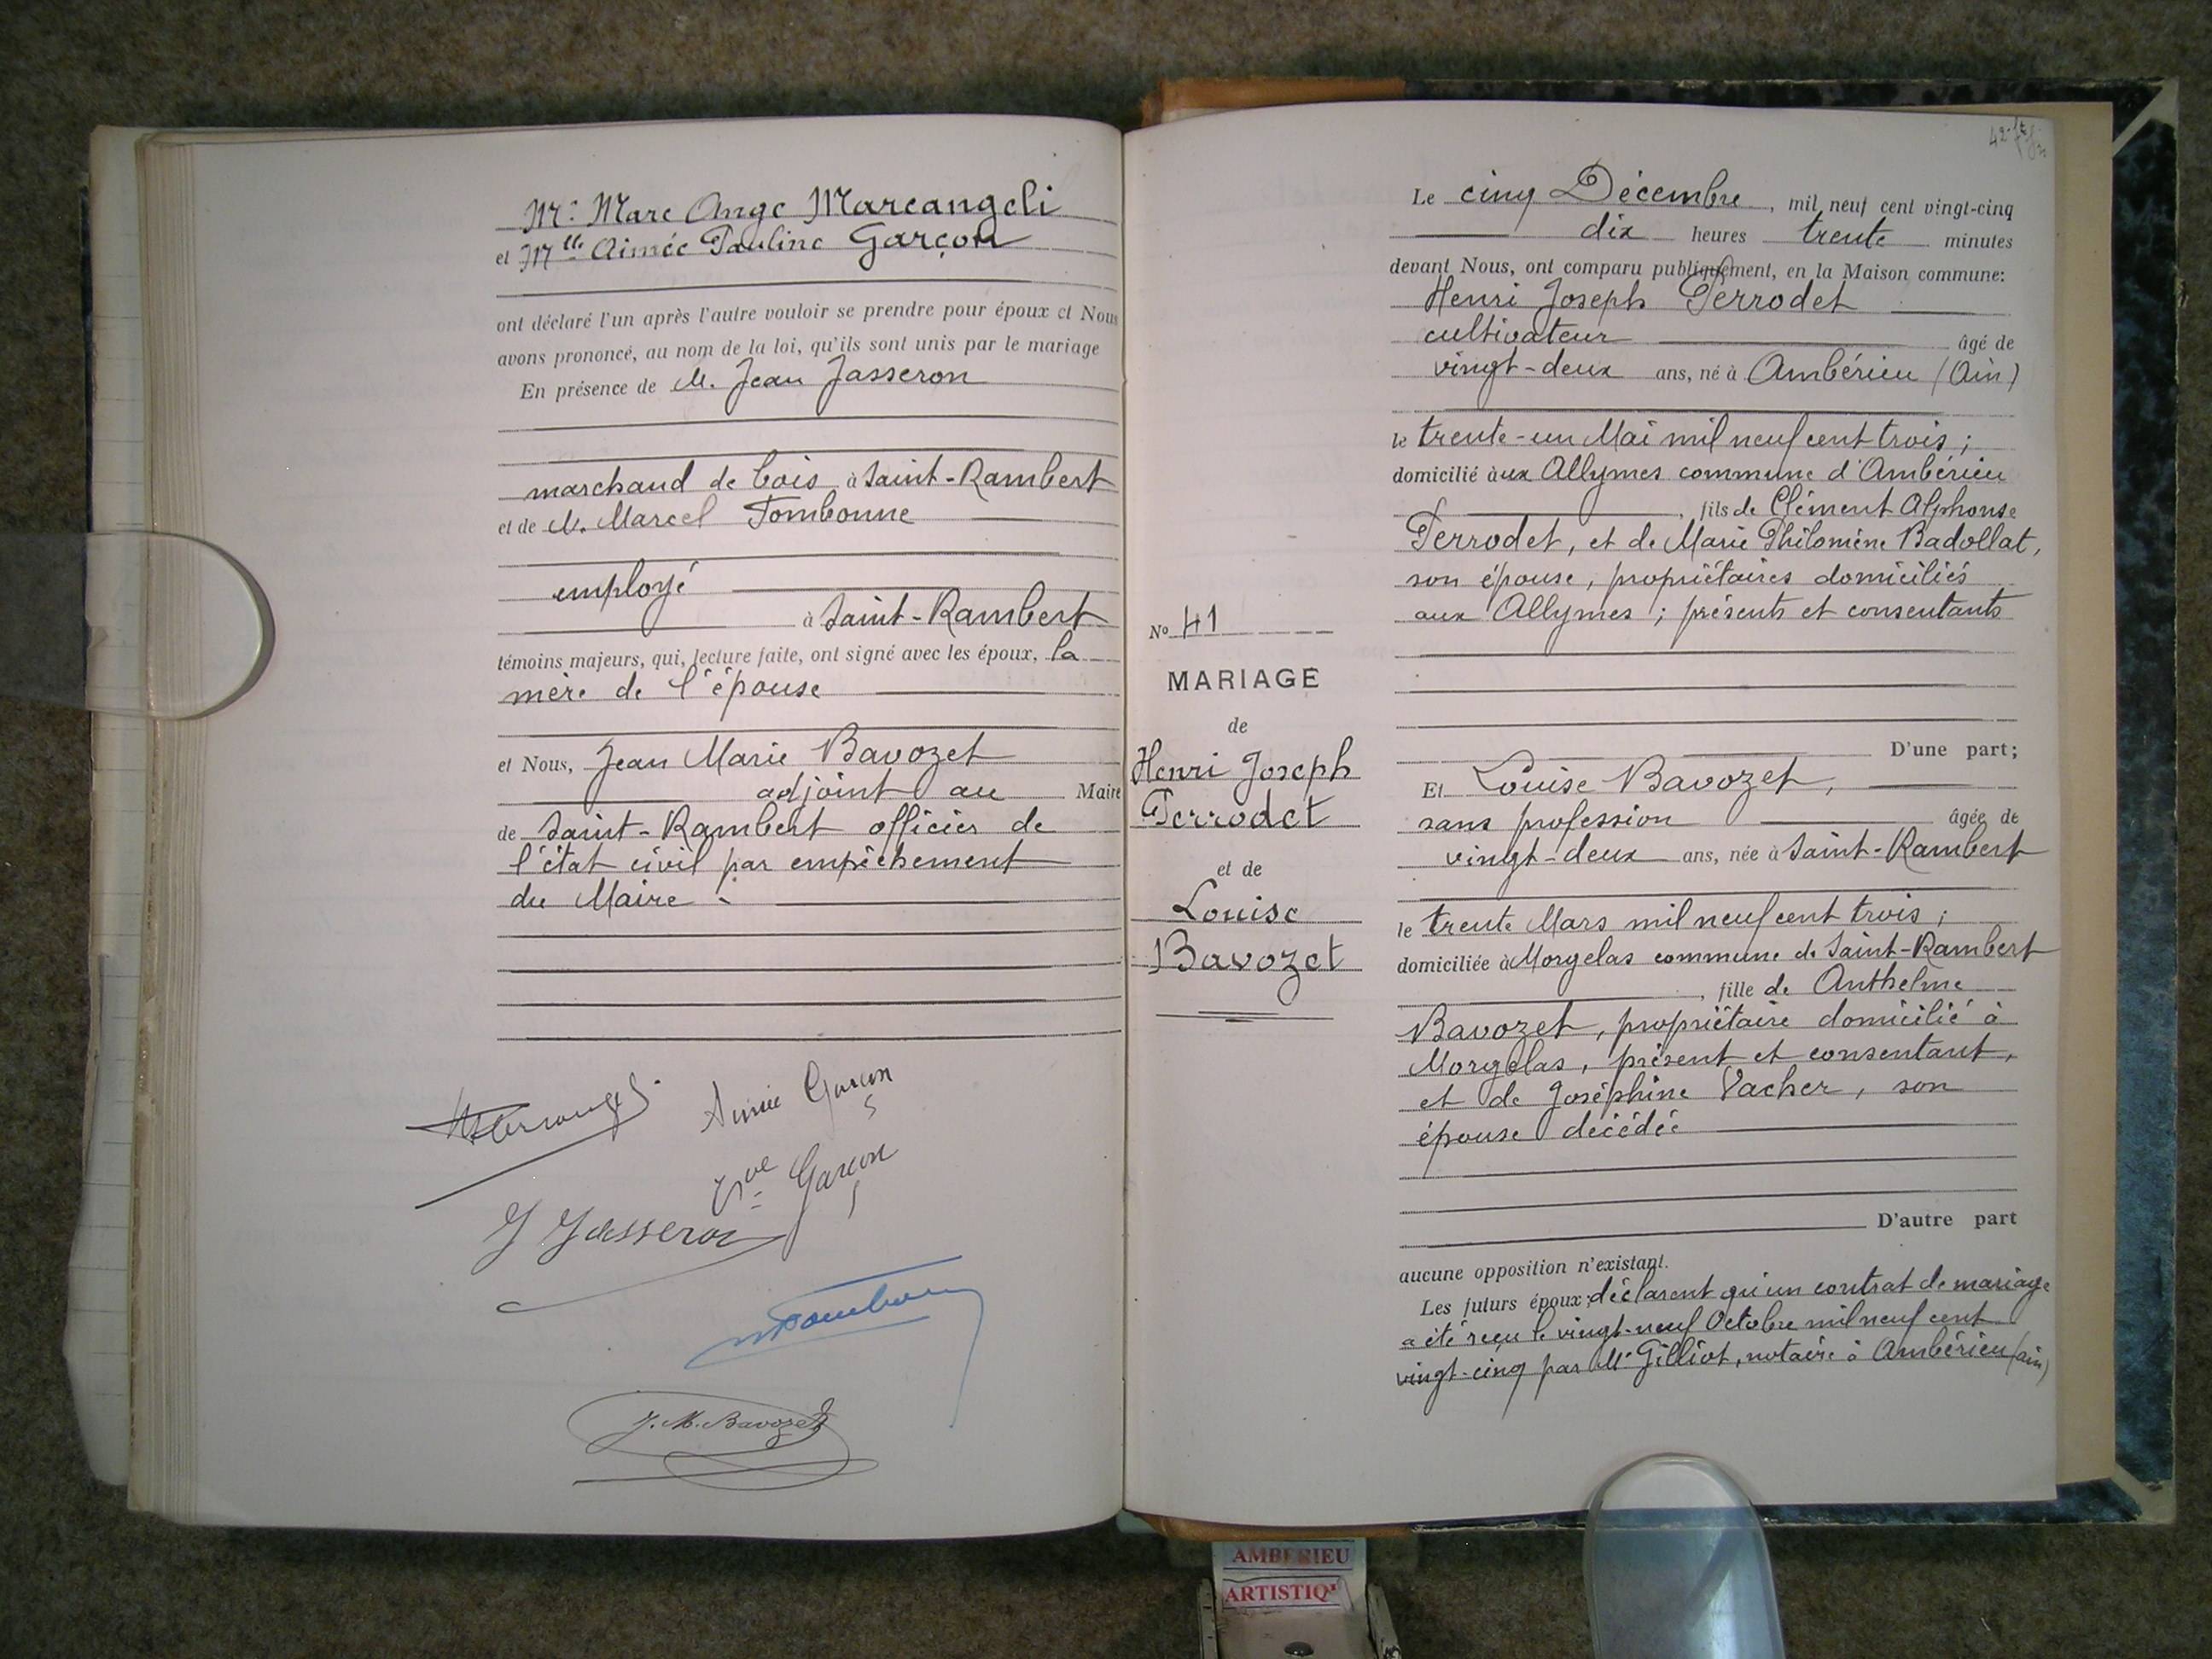 Mr. Marc Ange Marcangeli
et Mlle Aimée Pauline Garçon
ont déclaré l'un après l'autre vouloir se prendre pour époux et Nous
avons prononcé, au nom de la loi, qu'ils sont unis par le mariage
En présence de M. Jean Jasseron
marchand de bois à Saint-Rambert
et de M. Marcel Tombonne
employé
à Saint-Rambert
témoins majeurs, qui, lecture faite, ont signé avec les époux, la
mère de l'épouse
et Nous, Jean Marie Bavozet
adjoint au Maire
de Saint-Rambert officier de
l'état civil par empêchement
du Maire.
Aimée Garçon
Vve Garçon
J Jasseron
J. M. Bavozet
No 41
MARIAGE
de
Henri Joseph
Perrodet
et de
Louise
Bavozet
42
Le cinq Décembre, mil neuf cent vingt-cinq
dix heures trente minutes
devant Nous, ont comparu publiquement, en la Maison commune:
Henri Joseph Perrodet
cultivateur âgé de
vingt-deux ans, né à Ambérieu (Ain)
le trente-un Mai mil neuf cent trois;
domicilié aux Allymes commune d'Ambérieu
, fils de Clément Alphonse
Perrodet, et de Marie Philomène Badollat,
son épouse, propriétaires domiciliés
aux Allymes; présents et consentants
D'une part;
Et Louise Bavozet,
sans profession âgée de
vingt-deux ans, née à Saint-Rambert
le trente Mars mil neuf cent trois;
domiciliée à Morgelas commune de Saint-Rambert
, fille de Anthelme
Bavozet, propriétaire domicilié à
Morgelas, présent et consentant,
et de Joséphine Vacher, son
épouse décédée
D'autre part
aucune opposition n'existant.
Les futurs époux déclarent qu'un contrat de mariage
a été reçu le vingt-neuf Octobre mil neuf cent
vingt-cinq par Me Gilliot, notaire à Ambérieu (ain)
AMBERIEU
ARTISTIQ